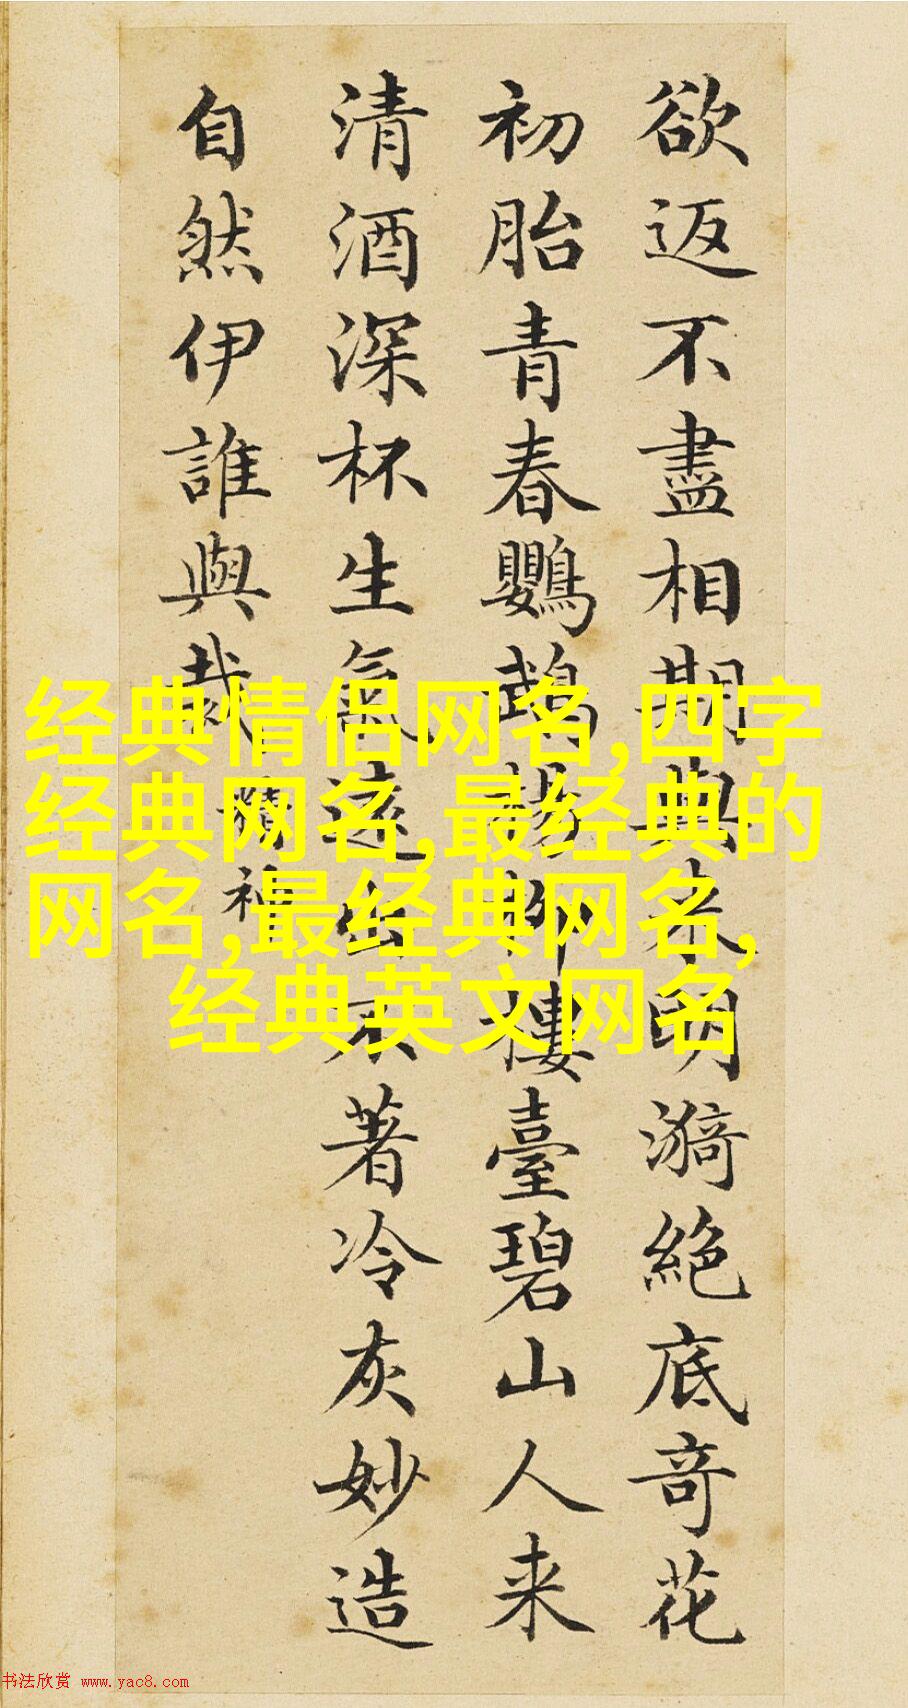 欲返不盡相期與來明漪絕底奇花
初胎青春鸚鵡楊柳樓臺碧山人來
清酒深杯生氣遠出不著冷灰妙造
自然伊誰與裁 精神
经典情侣网名,四字
经典网名,最经典的
网名,最经典网名,
经典英文网名
书法欣赏 www.yac8.com